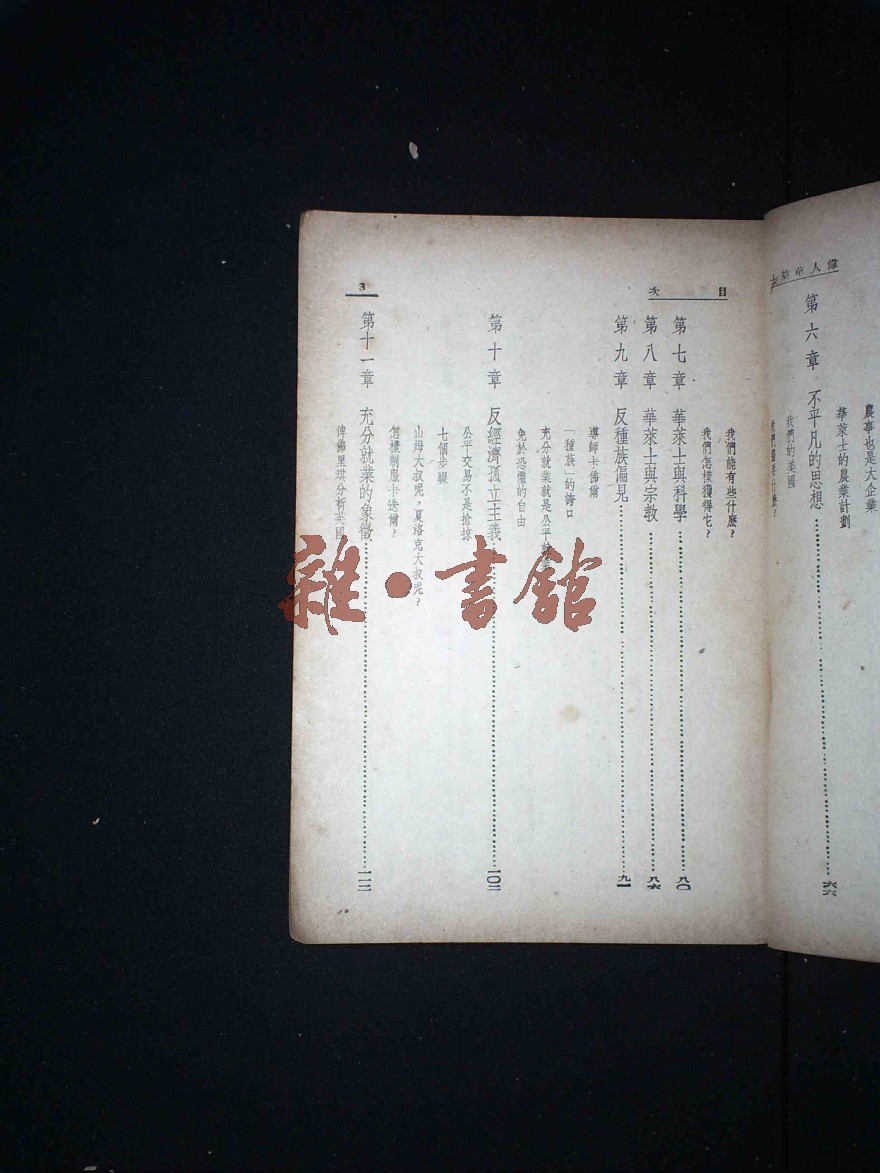 偉人華萊士
農事也是大企業
華萊士的農業計劃
第六章 不平凡的思想 六六
我們的美國
我們需要什麼?
目次
3
我們能有些什麼?
我們怎樣獲得它?
第七章 華萊士與科學 八〇
第八章 華萊士與宗教 八六
第九章 反種族偏見 九一
導師卡佛爾
「種族」的誇口
充分就業就是公平
免於恐懼的自由
第十章 反經濟孤立主義 一〇二
公平交易不是搶掠
七個步驟
山姆大叔呢,夏洛克大叔呢?
怎樣制服卡迭爾?
第十一章 充分就業的象徵 一一二
俾佛里琪分析英國
雜·書館